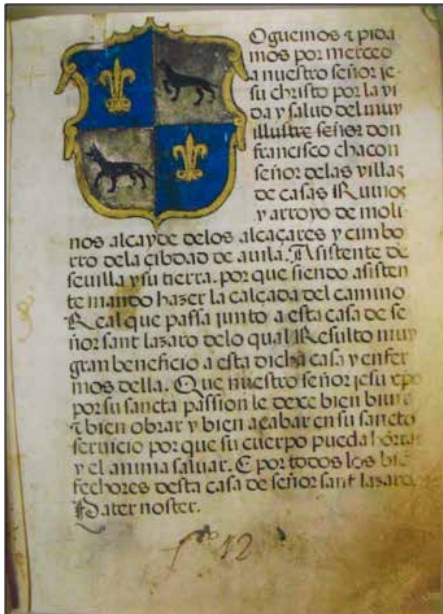 Oguemos ⁊ pida
mos por merced
a nuestro señor je
su christo por la vi
da y salud del muy
illustre señor don
francisco chacon
señor delas villas
de casas Ruuios
y arroyo de moli
nos alcayde delos alcaçares y cimbo
rro dela çibdad de auila. Asistente de
seuilla y su tierra. por que siendo asisten
te mando hazer la calçada del camino
Real que passa junto a esta casa de se
ñor sant lazaro delo qual Resulto muy
gran beneficio a esta dicha casa y enfer
mos della. Que nuestro señor jesu xpo
por su sancta passion le dexe bien biuir
⁊ bien obrar y bien acabar en su sancto
seruicio por que su cuerpo pueda hōrrar
y el anima saluar. E por todos los biē
fechores desta casa de señor sant lazaro.
Pater noster.
12